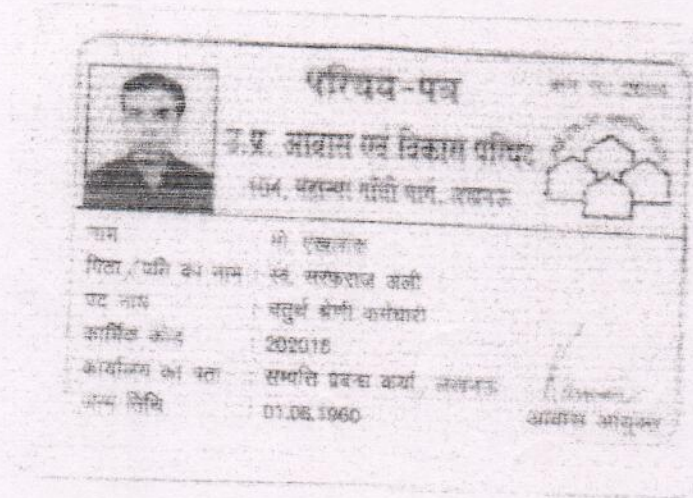 परिचय-पत्र
उ.प्र. आवास एवं विकास परिषद
104, महात्मा गाँधी मार्ग, लखनऊ
नाम : मो. एखलाक
पिता/पति का नाम : स्व. सरफराज अली
पद नाम : चतुर्थ श्रेणी कर्मचारी
कार्मिक कोड : 202016
कार्यालय का पता : सम्पत्ति प्रबन्ध कार्या. लखनऊ
जन्म तिथि : 01.06.1960
आवास आयुक्त